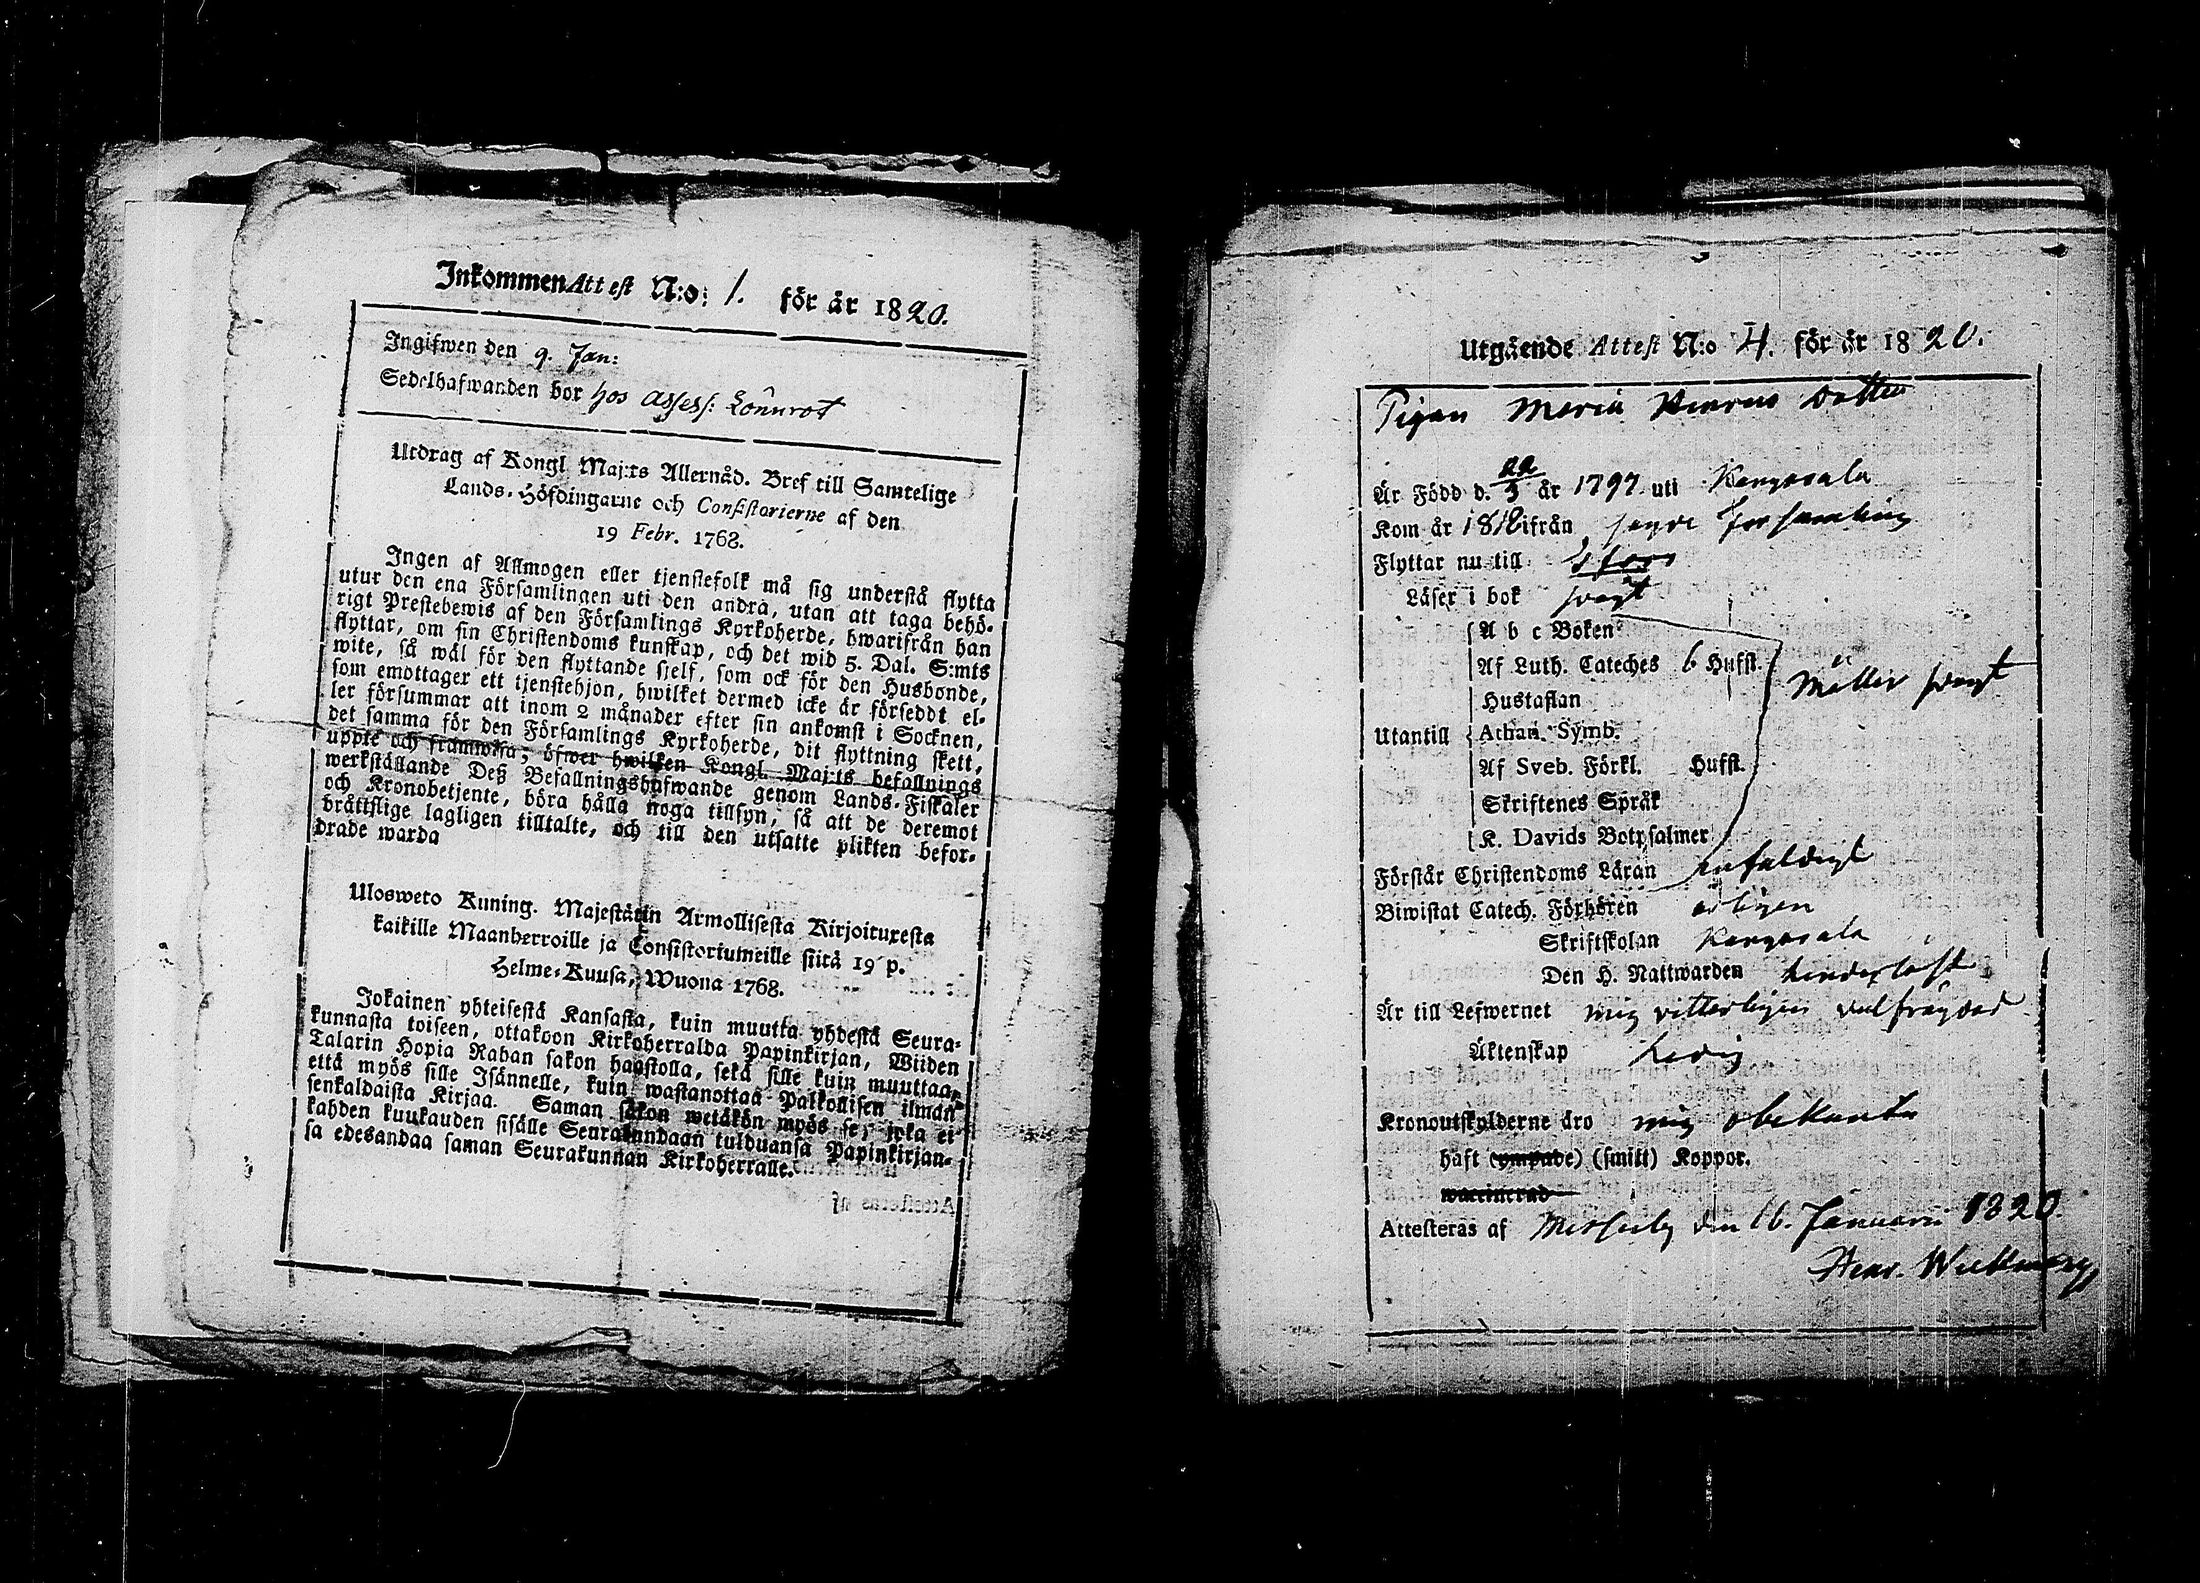 Inkommen Attest N:o: 1. för år 1820.
Ingifwen den 9. Jan:
Sedelhafwanden bor hos Assess: Lönnrot
Utdrag af Kongl Maj:ts Allernåd. Bref till Samtelige
Lands-Höfdingarne och Consistorierne af den
19 Febr. 1768.
Ingen af Allmogen eller tjenstefolk må sig understå flytta
utur den ena Församlingen uti den andra, utan att taga behö-
rigt Prestebewis af den Församlings Kyrkoherde, hwarifrån han
flyttar, om sin Christendoms kunskap, och det wid 5. Dal. S:mts
wite, så wäl för den flyttande sjelf, som ock för den Husbonde,
som emottager ett tjenstehjon, hwilket dermed icke är förseddt el-
ler försummar att inom 2 månader efter sin ankomst i Socknen,
det samma för den Församlings Kyrkoherde, dit flyttning skett,
uppte och framwisa; öfwer hwilken Kongl. Maj:ts befallnings
werkställande Deß Befallningshafwande genom Lands-Fiskaler
och Kronobetjente, böra hålla noga tillsyn, så att de deremot
bråttslige lagligen tilltalte, och till den utsatte plikten befor-
drade warda
Ulosweto Kuning. Majestätin Armollisesta Kirjoituxesta
kaikille Maanherroille ja Consistoriumeille siitä 19 p.
Helme-Kuusa, Wuona 1768.
Jokainen yhteisestä Kansasta, kuin muutta yhdestä Seura-
kunnasta toiseen, ottakoon Kirkoherralda Papinkirjan, Wiiden
Talarin Hopia Rahan sakon haastolla, sekä sille kuin muuttaa,
että myös sille Isännelle, kuin wastanottaa Palkollisen ilman
senkaldaista Kirjaa. Saman sakon wetäkön myös se, joka ei
kahden kuukauden sisälle Seurakundaan tulduansa Papinkirjan-
sa edesandaa saman Seurakunnan Kirkoherralle.
Utgående Attest N:o 4. för år 1820.
Pigan Maria Henrics dotter
Är Född d. 22/3 år 1797 uti Kangasala
Kom år 1818 ifrån sagde församling
Flyttar nu till
Läser i bok svagt
A b c Boken
Af Luth. Cateches 6 Hufst.
Hustaflan
Mäller svagt
Utantill Athan. Symb.
Af Sveb. Förkl. Hufst.
Skriftenes Språk
K. Davids Botpsalmer
Förstår Christendoms Läran enfaldigt
Biwistat Catech. Förhören årligen
Skriftskolan Kangasala
Den H. Nattwarden
Är till Lefwernet mig vitterligen välfrägdad
Äktenskap Ledig
Kronoutskylderne äro mig obekanta
haft (ympade) (smitt) Koppor.
waccinerad
Attesteras af Messuby den 16. Januarii 1820.
Henr.